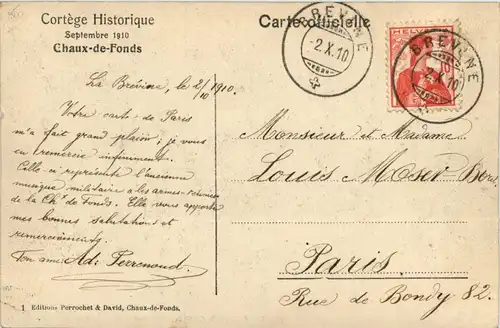 Cortège Historique
Septembre 1910
Chaux-de-Fonds
Carte officielle
BREVINE
-2.X.10
HELVETIA
BREVINE
-2.X.10
La Brévine, le 2/10 1910.
Votre carte de Paris
m'a fait grand plaisir; je vous
en remercie infiniment.
Celle-ci représente l'ancienne
musique militaire "les armes-réunies"
de la Chx de Fonds. Elle vous apporte
mes bonnes salutations et
remerciements.
Ton ami Ad. Perrenoud.
Monsieur et Madame
Louis Moser
Paris
Rue de Bondy 82.
1 Editions Perrochet & David, Chaux-de-Fonds.